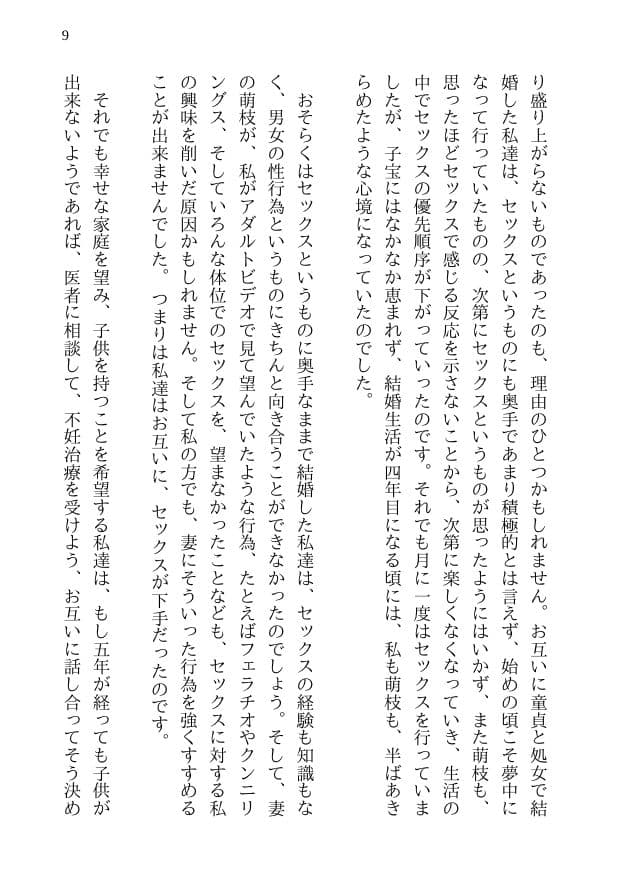 9
り盛り上がらないものであったのも、理由のひとつかもしれません。お互いに童貞と処女で結
婚した私達は、セックスというものにも奥手であまり積極的とは言えず、始めの頃こそ夢中に
なって行っていたものの、次第にセックスというものが思ったようにはいかず、また萌枝も、
思ったほどセックスで感じる反応を示さないことから、次第に楽しくなくなっていき、生活の
中でセックスの優先順序が下がっていったのです。それでも月に一度はセックスを行っていま
したが、子宝にはなかなか恵まれず、結婚生活が四年目になる頃には、私も萌枝も、半ばあき
らめたような心境になっていたのでした。
おそらくはセックスというものに奥手なままで結婚した私達は、セックスの経験も知識もな
く、男女の性行為というものにきちんと向き合うことができなかったのでしょう。そして、妻
の萌枝が、私がアダルトビデオで見て望んでいたような行為、たとえばフェラチオやクンニリ
ングス、そしていろんな体位でのセックスを、望まなかったことなども、セックスに対する私
の興味を削いだ原因かもしれません。そして私の方でも、妻にそういった行為を強くすすめる
ことが出来ませんでした。つまりは私達はお互いに、セックスが下手だったのです。
それでも幸せな家庭を望み、子供を持つことを希望する私達は、もし五年が経っても子供が
出来ないようであれば、医者に相談して、不妊治療を受けよう、お互いに話し合ってそう決め